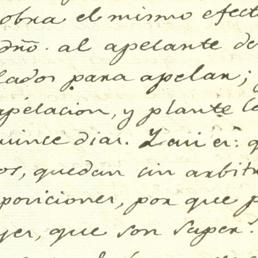 obra el mismo efect
dño. al apelante de
lados para apelar; y
apelacion, y plante la
uince dias.
os, quedan sin arbitr
posiciones, por que p
yer, que son super.